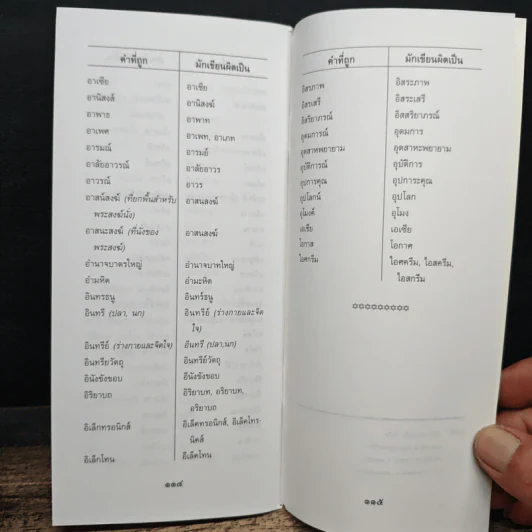 คำที่ถูก มักเขียนผิดเป็น
อาเซีย อาเซีย
อานิสงส์ อานิสงฆ์
อาพาธ อาพาท
อาเพศ อาเพท, อาเภท
อารมณ์ อารมย์
อาลัยอาวรณ์ อาลัยอาวร
อาวรณ์ อาวร
อาสน์สงฆ์ (ที่ยกพื้นสำหรับ อาสนสงฆ์
พระสงฆ์นั่ง)
อาสนะสงฆ์ (ที่นั่งของ อาสนสงฆ์
พระสงฆ์)
อำนาจบาตรใหญ่ อำนาจบาทใหญ่
อำมหิต อำมะหิต
อินทรธนู อินทร์ธนู
อินทรี (ปลา, นก) อินทรีย์ (ร่างกายและจิต
ใจ)
อินทรีย์ (ร่างกายและจิตใจ) อินทรี (ปลา,นก)
อินทรียวัตถุ อินทรีย์วัตถุ
อีนังขังขอบ อินังขังขอบ
อิริยาบถ อิริยาบท, อริยาบท,
อริยาบถ
อิเล็กทรอนิกส์ อิเล็คทรอนิกส์, อิเล็คโทร-
นิคส์
อิเล็กโทน อิเล็คโทน
๑๑๔
คำที่ถูก มักเขียนผิดเป็น
อิสรภาพ อิสระภาพ
อิสรเสรี อิสระเสรี
อิสริยาภรณ์ อิสสริยาภรณ์
อุดมการณ์ อุดมการ
อุตสาหพยายาม อุตสาหะพยายาม
อุบัติการณ์ อุบัติการ
อุปการคุณ อุปการะคุณ
อุปโลกน์ อุปโลก
อุโมงค์ อุโมง
เอเชีย เอเซีย
โอกาส โอกาศ
ไอศกรีม ไอศครีม, ไอสครีม,
ไอสกรีม
๑๑๕